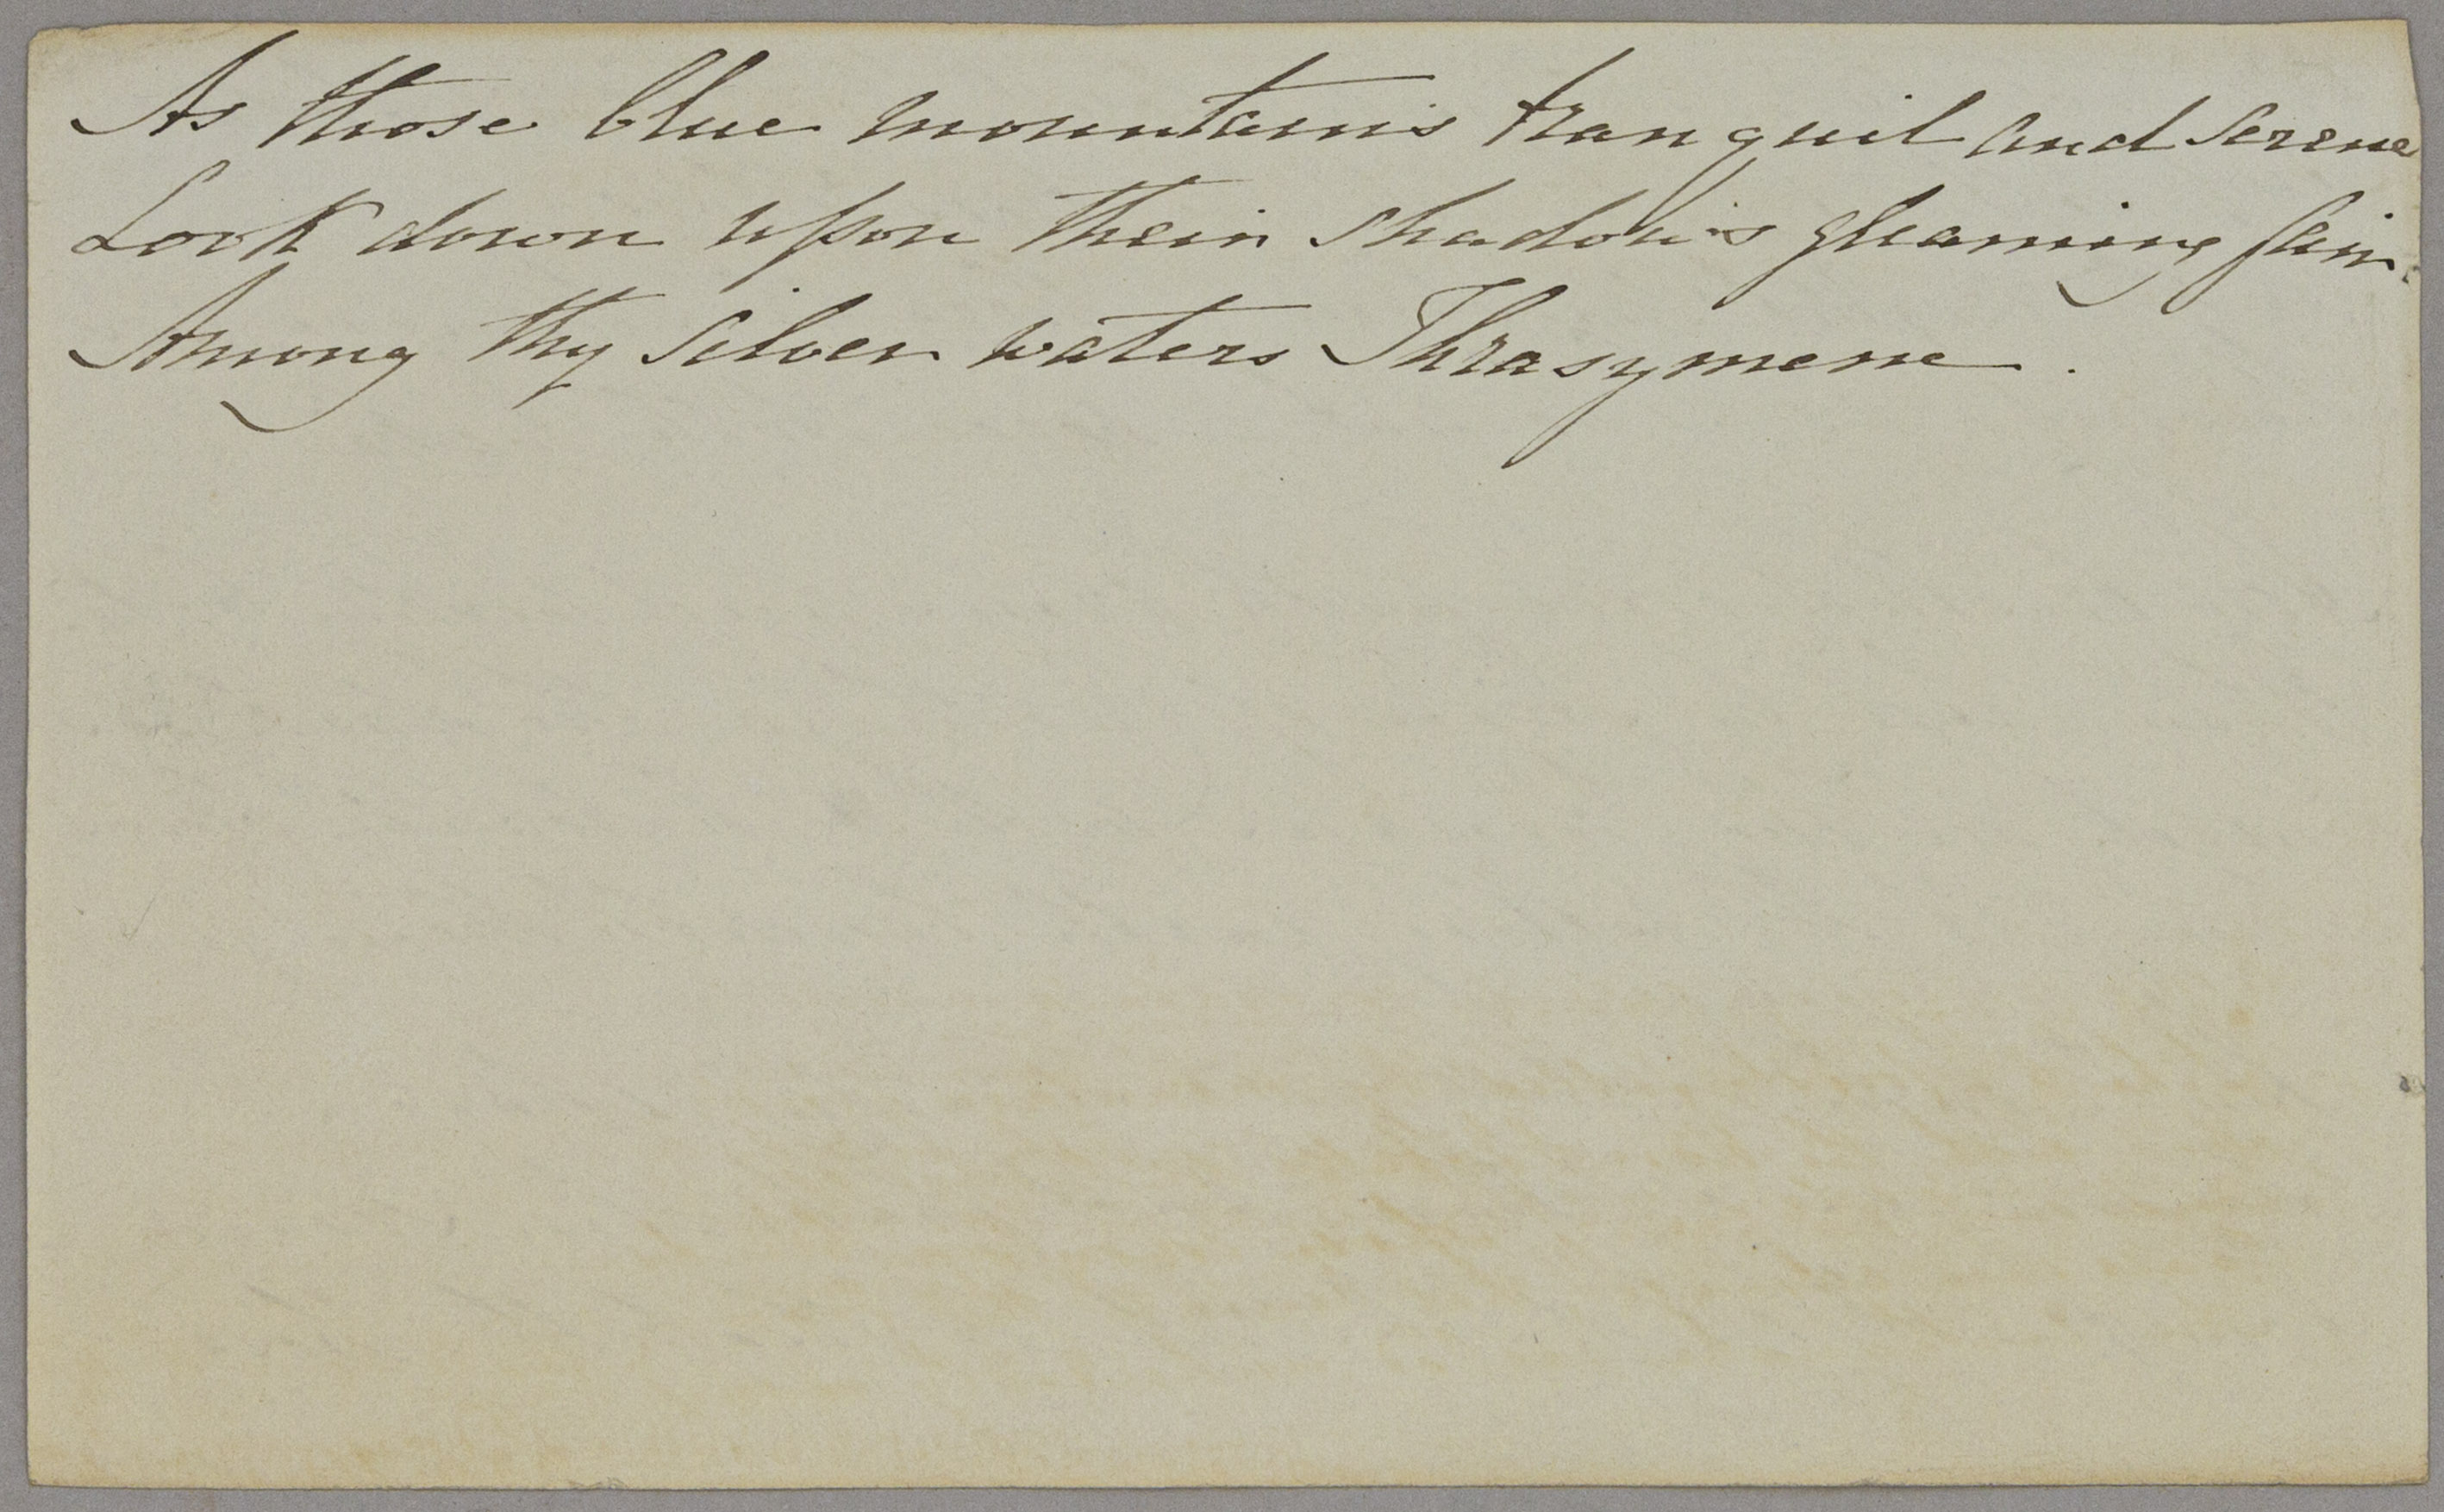 As those blue mountains tranquil and serene
Look down upon their shadows gleaming fair
Among thy silver waters Thrasymene.